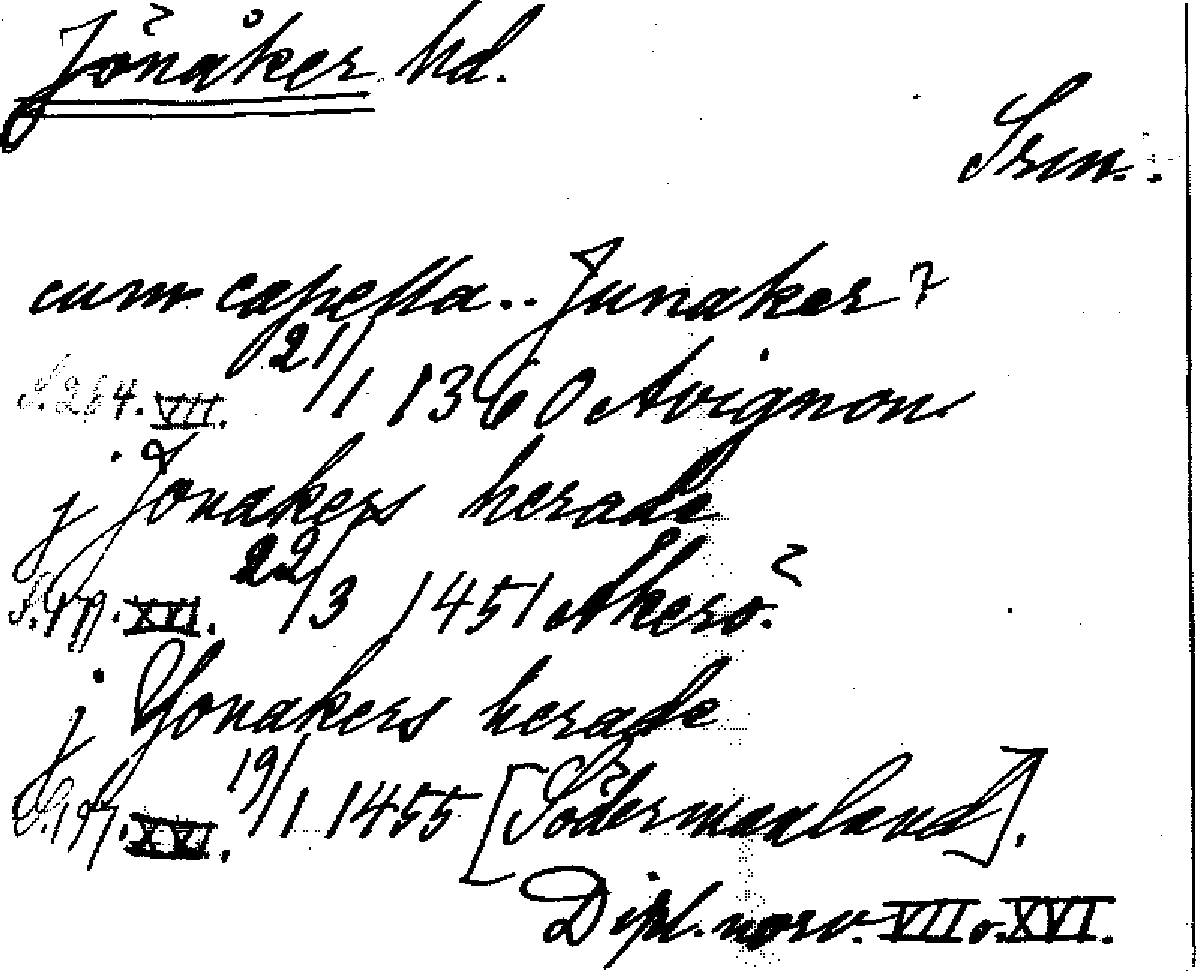 Jönåker hd.
Srm.
cum capella.. Junaker?
S. 264. VII. 21/1 1360 Avignon
j Jonakers herade
XVI. 22/3 1451 Åkerö.
j Yonakers herade
XVI. 19/1 1455 [Södermanland].
Dipl. norv. VII o. XVI.